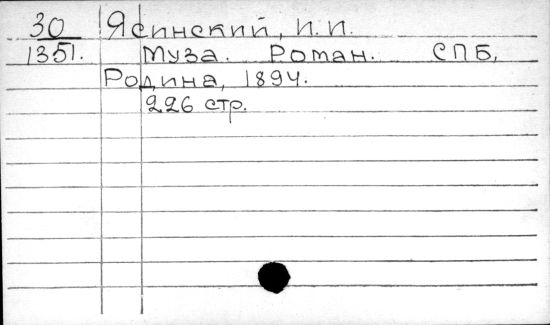 30 Ясинский, И. И.
1351. Муза. Роман. СПБ,
Родина, 1894.
226 стр.